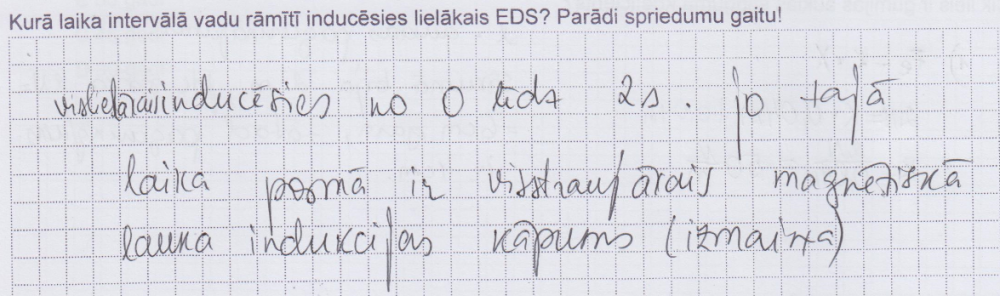 Kurā laika intervālā vadu rāmītī inducēsies lielākais EDS? Parādi spriedumu gaitu!
vislielākais inducēsies no 0 līdz 2s. jo tajā
laika posmā ir visstraujākais magnētiskā
lauka indukcijas kāpums (izmaiņa)